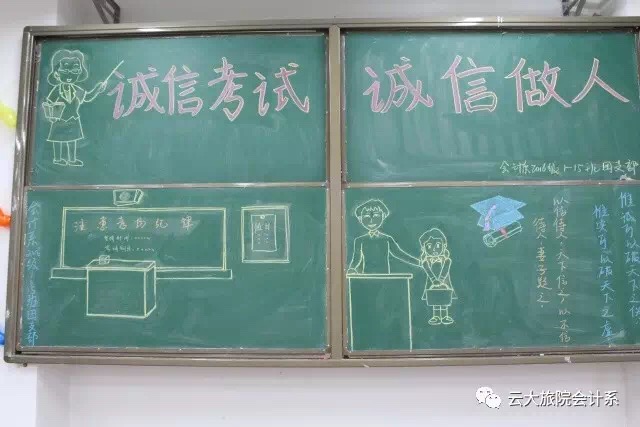 诚信考试
诚信做人
会计系2016级1-15班团支部
注意考场纪律
惟诚可以破天下之伪
惟实可以破天下之虚
以信待人,天下信之;以不信
待人,妻子疑之。
云大旅院会计系